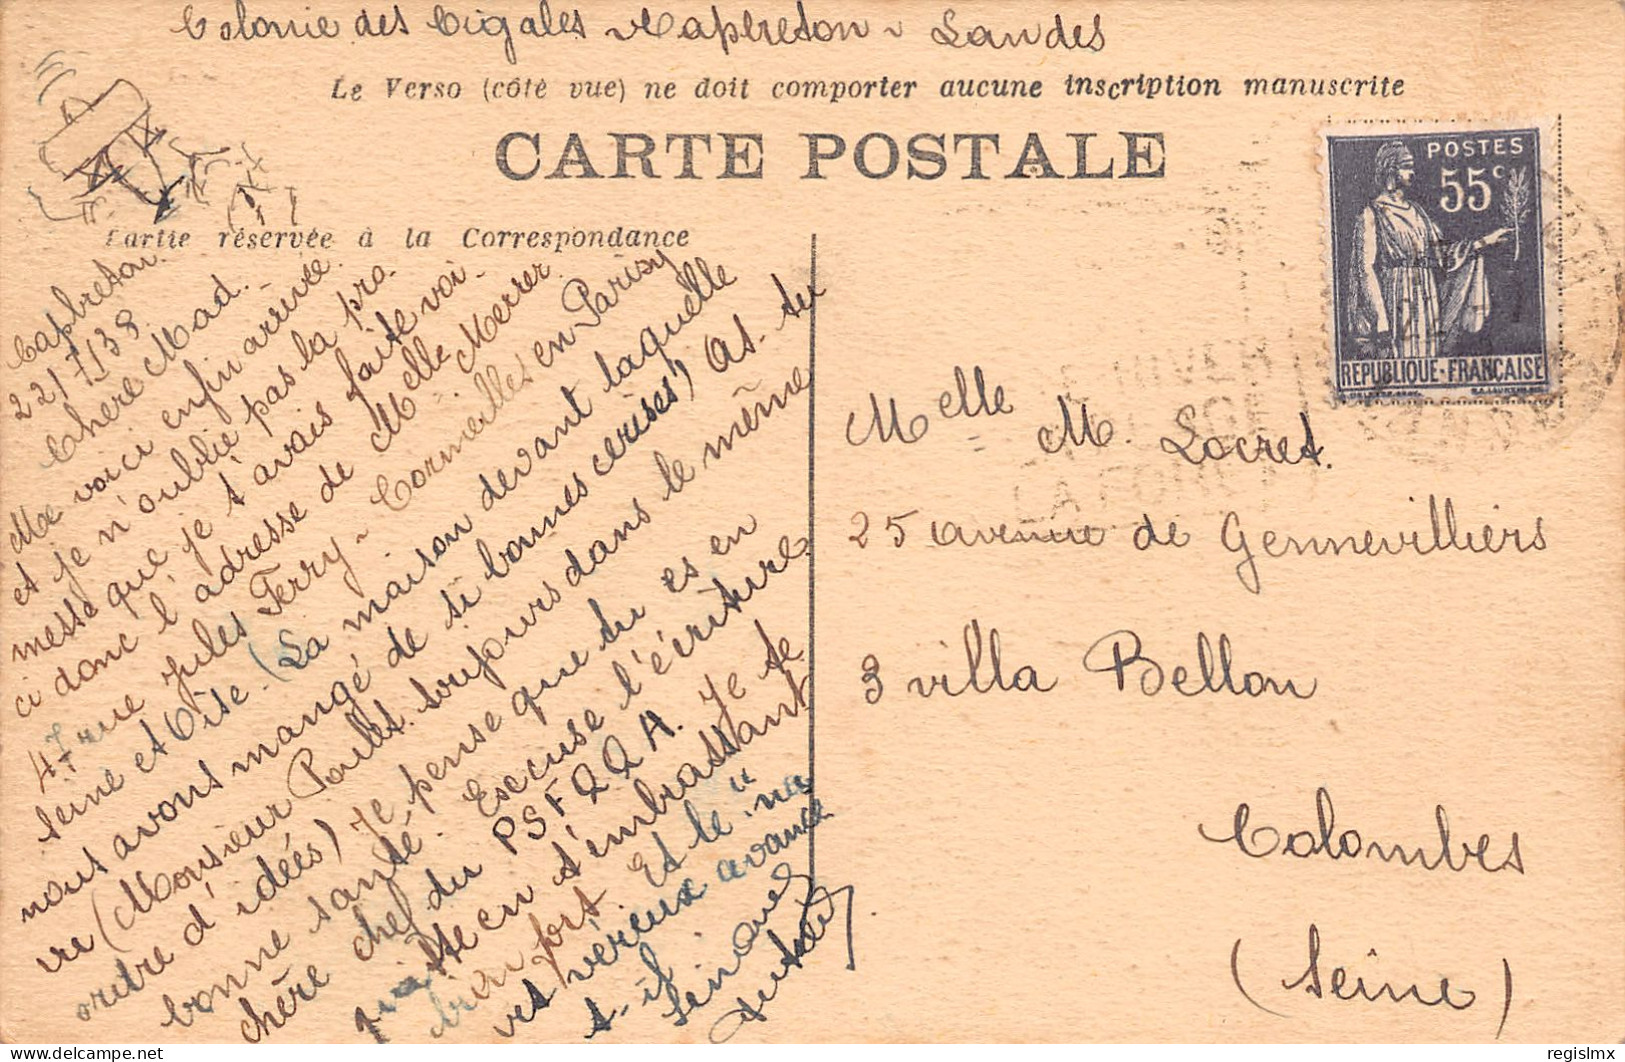 Colonie des Cigales Capbreton Landes
Le Verso (côté vue) ne doit comporter aucune inscription manuscrite
CARTE POSTALE
Partie réservée à la Correspondance
Capbreton
22/7/38
Chère Mad.
Me voici enfin arrivée
et je n'oublie pas la pro-
messe que je t'avais faite voi-
ci donc l'adresse de Melle Merrer
47 rue Jules Ferry - Cormeilles en Parisy
Seine et Oise. (La maison devant laquelle
nous avons mangé de si bonnes cerises) As-tu
vu (Monsieur Poulet toujours dans le même
ordre d'idées) Je pense que tu es en
bonne santé. Excuse l'écriture
chère chef du PSFQQA. Je te
quitte en t'embrassant
bien fort. Et le "na
vet" véreux avance
t-il
POSTES
55c
REPUBLIQUE-FRANÇAISE
Melle M. Locret.
25 avenue de Gennevilliers
3 villa Bellon
Colombes
(Seine)
delcampe.net
regislmx